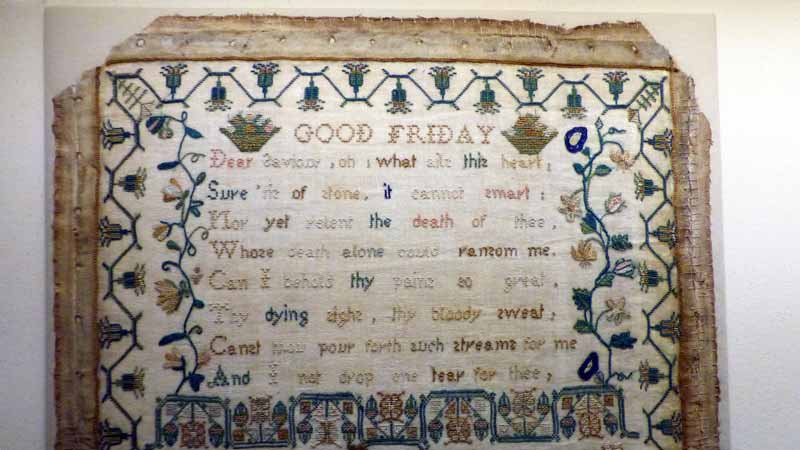 GOOD FRIDAY
Dear Saviour, oh ; what ails this heart;
Sure 'tis of stone, it cannot smart;
Nor yet relent the death of thee,
Whose death alone could ransom me.
Can I behold thy pains so great,
Thy dying sighs, thy bloody sweat;
Canst thou pour forth such streams for me
And I not drop one tear for thee;